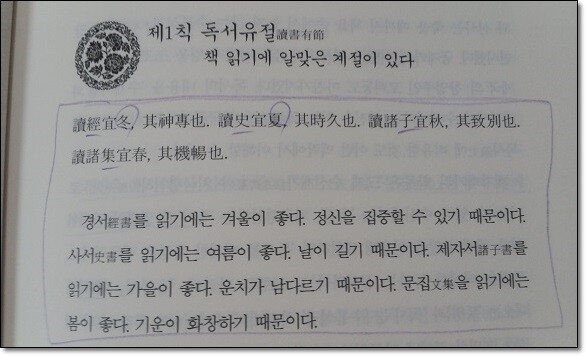 제1칙 독서유절讀書有節
책 읽기에 알맞은 계절이 있다
讀經宜冬, 其神專也. 讀史宜夏, 其時久也. 讀諸子宜秋, 其致別也.
讀諸集宜春, 其機暢也.
경서經書를 읽기에는 겨울이 좋다. 정신을 집중할 수 있기 때문이다.
사서史書를 읽기에는 여름이 좋다. 날이 길기 때문이다. 제자서諸子書를
읽기에는 가을이 좋다. 운치가 남다르기 때문이다. 문집文集을 읽기에는
봄이 좋다. 기운이 화창하기 때문이다.